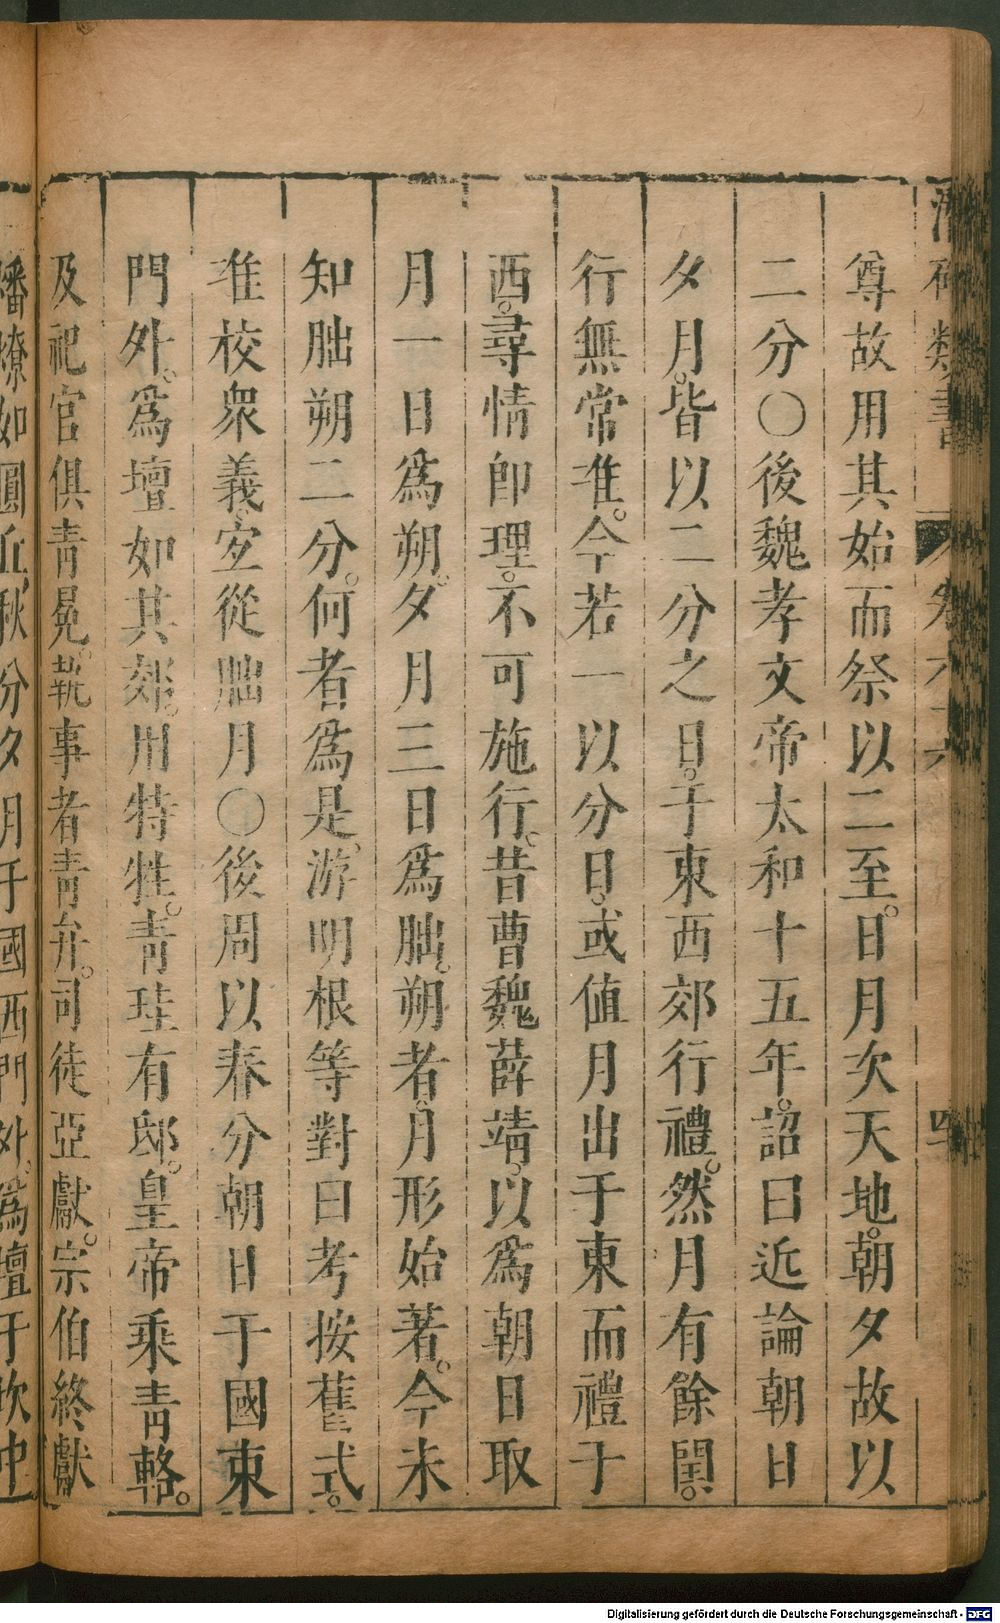 尊故用其始而祭以二至。日月次天地。朝夕故以
二分〇後魏孝文帝太和十五年。詔曰近論朝日
夕月。皆以二分之日。于東西郊行禮。然月有餘閏。
行無常准。今若一以分日。或值月出于東而禮于
西。尋情即理。不可施行。昔曹魏薛靖。以爲朝日取
月一日爲朔。夕月三日爲朏。朔者。月形始著。今未
知朏朔二分。何者爲是。游明根等對曰考按舊式。
准校衆義。宐從朏月〇後周以春分朝日于國東
門外。爲壇如其郊。用特牲。青珪有邸。皇帝乘青輅。
及祀官俱青冕。執事者青弁。司徒亞獻。宗伯終獻
燔燎如圜丘。秋分夕月于國西門外。爲壇于坎中
類書
四
Digitalisierung gefördert durch die Deutsche Forschungsgemeinschaft - DFG